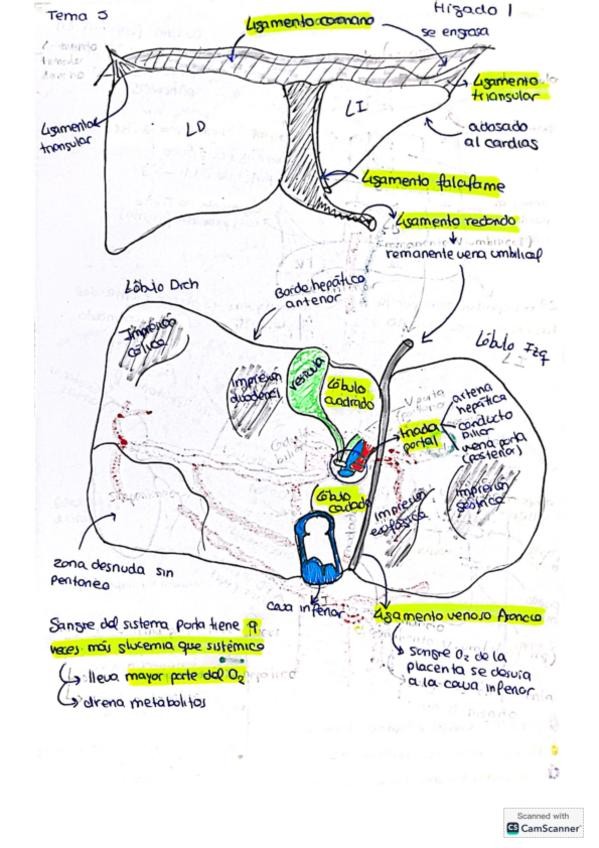 Tema 5
Hígado 1
Ligamento coronario
se engrosa
Ligamento
triangular
Ligamento
triangular
LD
LI
adosado
al cardias
Ligamento falciforme
Ligamento redondo
remanente vena umbilical
Lóbulo Drch
Borde hepático
anterior
Lóbulo Izq
Impresión
cólica
Impresión
duodenal
vesícula
Lóbulo
cuadrado
triada
portal
arteria
hepática
conducto
biliar
vena porta
(posterior)
Lóbulo
caudado
Impresión
esofágica
Impresión
gástrica
zona desnuda sin
Peritoneo
cava inferior
Ligamento venoso Arancio
sangre O₂ de la
placenta se desvía
a la cava inferior
Sangre del sistema porta tiene 9
veces más glucemia que sistémico
lleva mayor parte del O₂
drena metabolitos
Scanned with
CS CamScanner